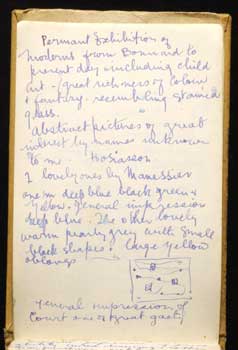 Permant Exhibition of
moderns from Bonnard to
present day including child
art - great richness of colour
& fantasy - resembling stained
glass.
Abstract pictures of great
interest by names unknown
to me. Hosiasson
2 lovely ones by Manessier
one in deep blue black green &
yellow. General impression
deep blue. The other lovely
warm pearly grey with small
black shapes & large yellow
oblongs
General impression of
Court one of great